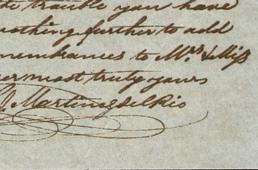 trouble you have
nothing further to add
remembrances to Mrs & Miss
ever most truly yours
J. Martinez del Rio